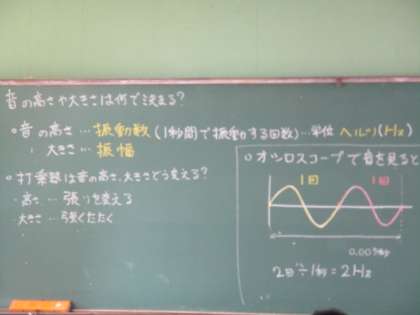 音の高さや大きさは何で決まる?
○音の高さ…振動数(1秒間で振動する回数)…単位 ヘルツ(Hz)
〃 大きさ…振幅
○打楽器は音の高さ、大きさどう変える?
高さ…張りを変える
大きさ…強くたたく
○オシロスコープで音を見ると
1回 1回
2回÷1秒=2Hz